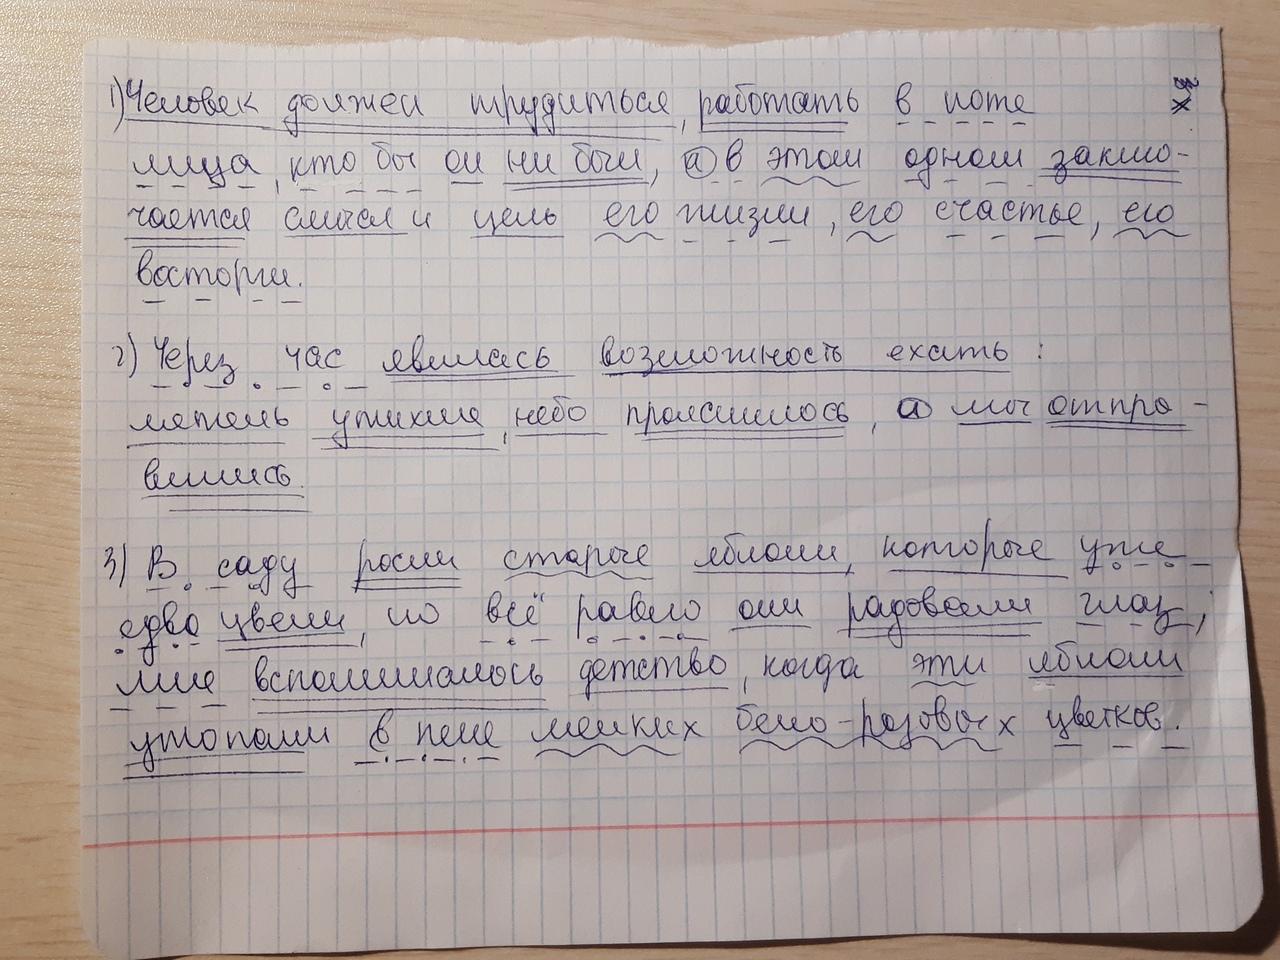 1) Человек должен трудиться, работать в поте
лица, кто бы он ни был, а в этом одном заклю-
чается смысл и цель его жизни, его счастье, его
восторги.
2) Через час явилась возможность ехать:
метель утихла, небо прояснилось, а мы отпра-
вились.
3) В саду росли старые яблони, которые уже
едва цвели, но всё равно они радовали глаз,
мне вспоминалось детство, когда эти яблони
утопали в пене мелких бело-розовых цветков.